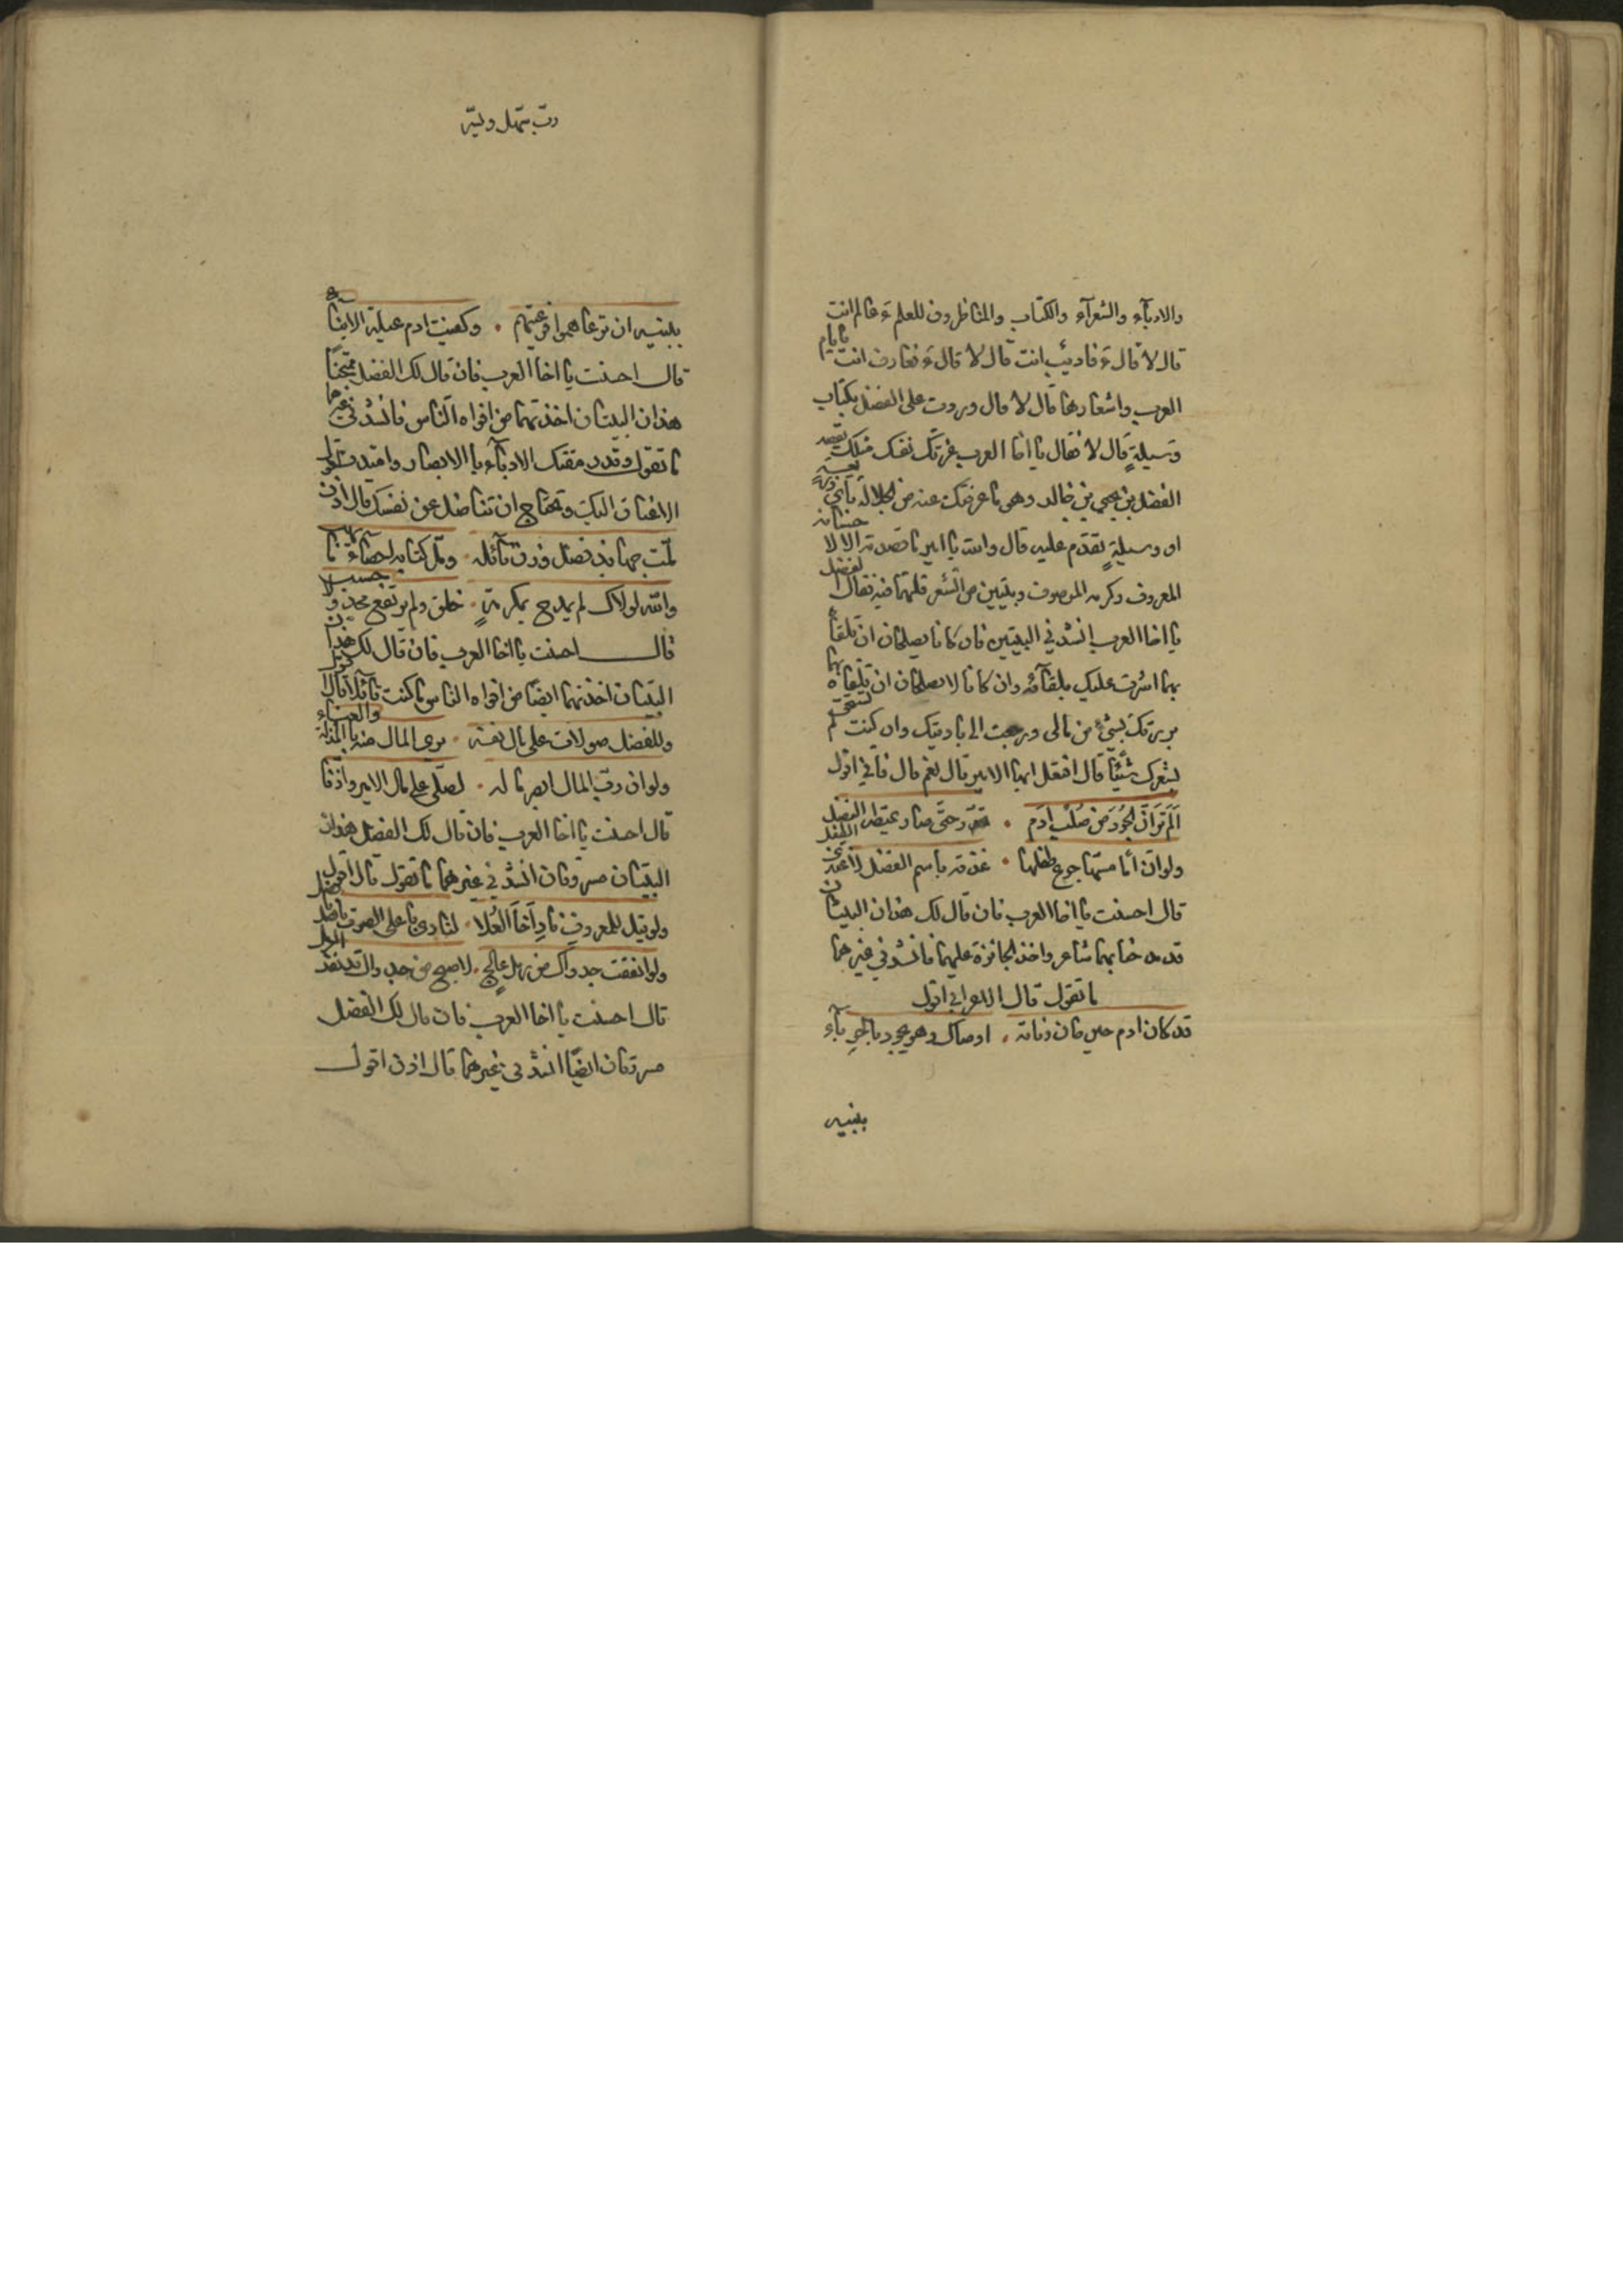 والادبآء والشعرآء والكتاب والمناظرون للعلم ءَ عالم انت
قال لا قال ءَ فاديب انت قال لا قال ءَ فعارف انت بايام
العرب واشعارها قال لا قال وردت على الفضل بكتاب
وسيلةٍ قال لا فقال يا اخا العرب غرتك نفسك مثلك يقصد
الفضل بن يحيى بن خالد وهو ما عرفتك عنه من الجلالة بأي ذريعة
او وسيلةٍ تقدم عليه قال والله يا امير ما قصدته الا لاحسانه
المعروف وكرمه الموصوف وبيتين من الشعر قلتهما فيه فقال الفضل
يا اخا العرب انشدني البيتين فان كانا يصلحان ان تلقاه
بهما اشرت عليك بلقآئه وان كانا لا يصلحان ان تلقاه بهما
بررتك بشئ من مالى ورجعت الى باديتك وان كنت لم تستحق
بشعرك شيئًا قال افتفعل ايها الامير قال نعم قال فاني اقول
اَلَم تَرَ اَنَّ الجُودَ مَن صُلْبِ ادَم • تحدّر حتى صار يمتطى الفضل
ولو ان أمّا مسّها جوع طفلها • غذته باسم الفضل لاغتذى الطفل
قال احسنت يا اخا العرب فان قال لك هذان البيتان
قد مدحنا بهما شاعر واخذ الجائزة عليهما فانشدني غيرهما
ما تقول قال الاعرابى اقول
قد كان ادم حين حان وفاته • اوصاك وهو يجود بالحوبآء
ببنيه
رب سهل ويسر
ببنيه ان ترعاهموا فرعيتهم • وكفيت ادم عيلة الابنآء
قال احسنت يا اخا العرب فان قال لك الفضل ممتحنًا
هذان البيتان اخذتهما من افواه الناس فانشدني غيرهما
ما تقول وقد رمقتك الادبآء بالابصار وامتدت
الاعناق اليك وتحتاج ان تناضل عن نفسك قال اذن اقول
ملّت جهابذ فضل وزن نآئله • وملّ كتابه احصآء ما يهب
والله لولاك لم يمدح بمكرمةٍ • خلق ولم يرتفع مجد ولا حسب
قال احسنت يا اخا العرب فان قال لك هذان
البيتان اخذتهما ايضًا من افواه الناس ما كنت قآئلا قال اقول
وللفضل صولات على مال نفسه • يرى المال منه بالمذلة والعناء
ولو ان رب المال ابصر ماله • لصلّى على مال الامير واذنا
قال احسنت يا اخا العرب فان قال لك الفضل هذان
البيتان مسروقان انشدني غيرهما ما تقول قال اقول
ولو قيل للمعروف نادِ اَخاَ العُلا • لنادى باعلى الصوت يا فضل يا فضل
ولو انفقت جدواك من رمل عالجٍ • لاصبح من جدواك قد نفد الرمل
قال احسنت يا اخا العرب فان قال لك الفضل
مسروقان ايضًا انشدني غيرهما قال اذن اقول